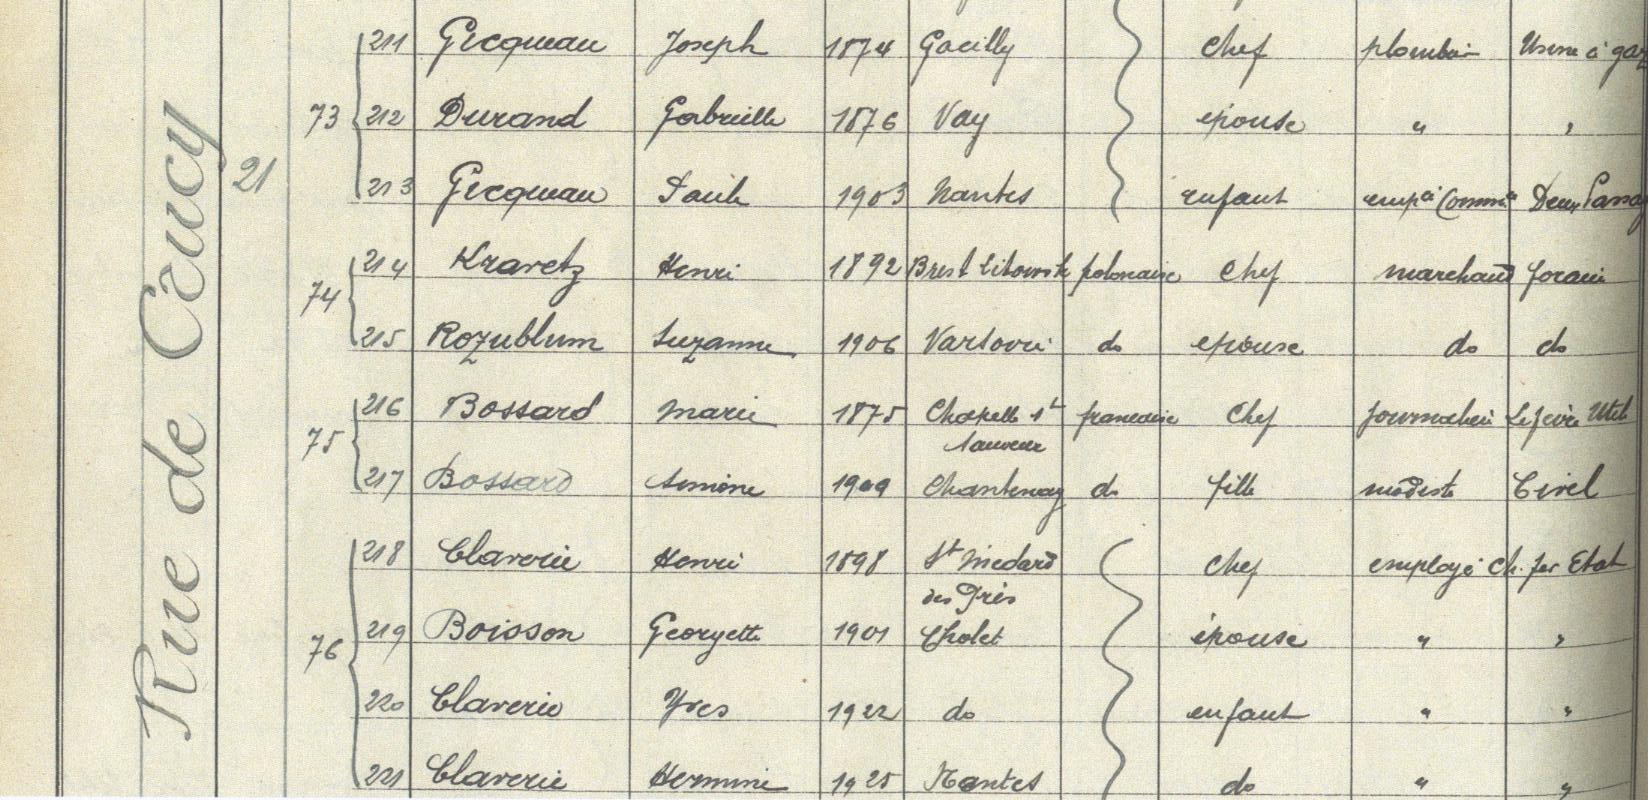 Rue de Coucy
21
73
211 Gicqueau Joseph 1874 Gacilly chef plombier Usine à gaz
212 Durand Gabrielle 1876 Vay épouse " "
213 Gicqueau Paule 1903 Nantes enfant empée Deux
74
214 Kravetz Henri 1892 Brest Litowsk polonaise Chef marchand forain
215 Rozublum Suzanne 1906 Varsovie do epouse do do
75
216 Bossard Marie 1875 Chapelle St francaise Chef journalière Lefèvre Utile
Sauveur
217 Bossard Simone 1909 Chantenay do fille modiste
76
218 Claverie Henri 1898 St Medard Chef employé Ch. fer Etat
des Près
219 Boisson Georgette 1901 Cholet épouse " "
220 Claverie Yves 1922 do enfant " "
221 Claverie Hermine 1925 Nantes do " "